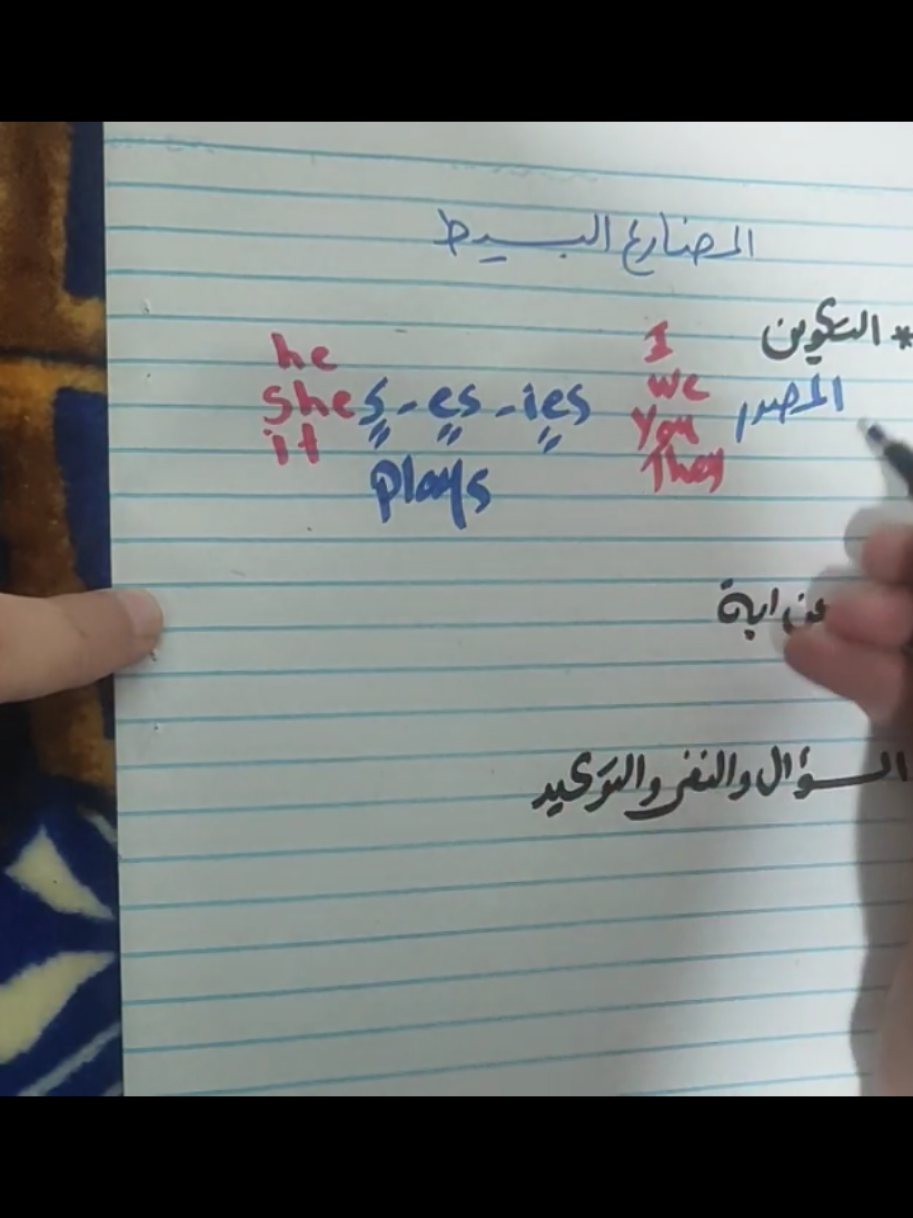 المضارع البسيط
* التكوين
المصدر
I
we
you
They
he
she
it
s - es - ies
plays
السؤال والنفى والتوكيد